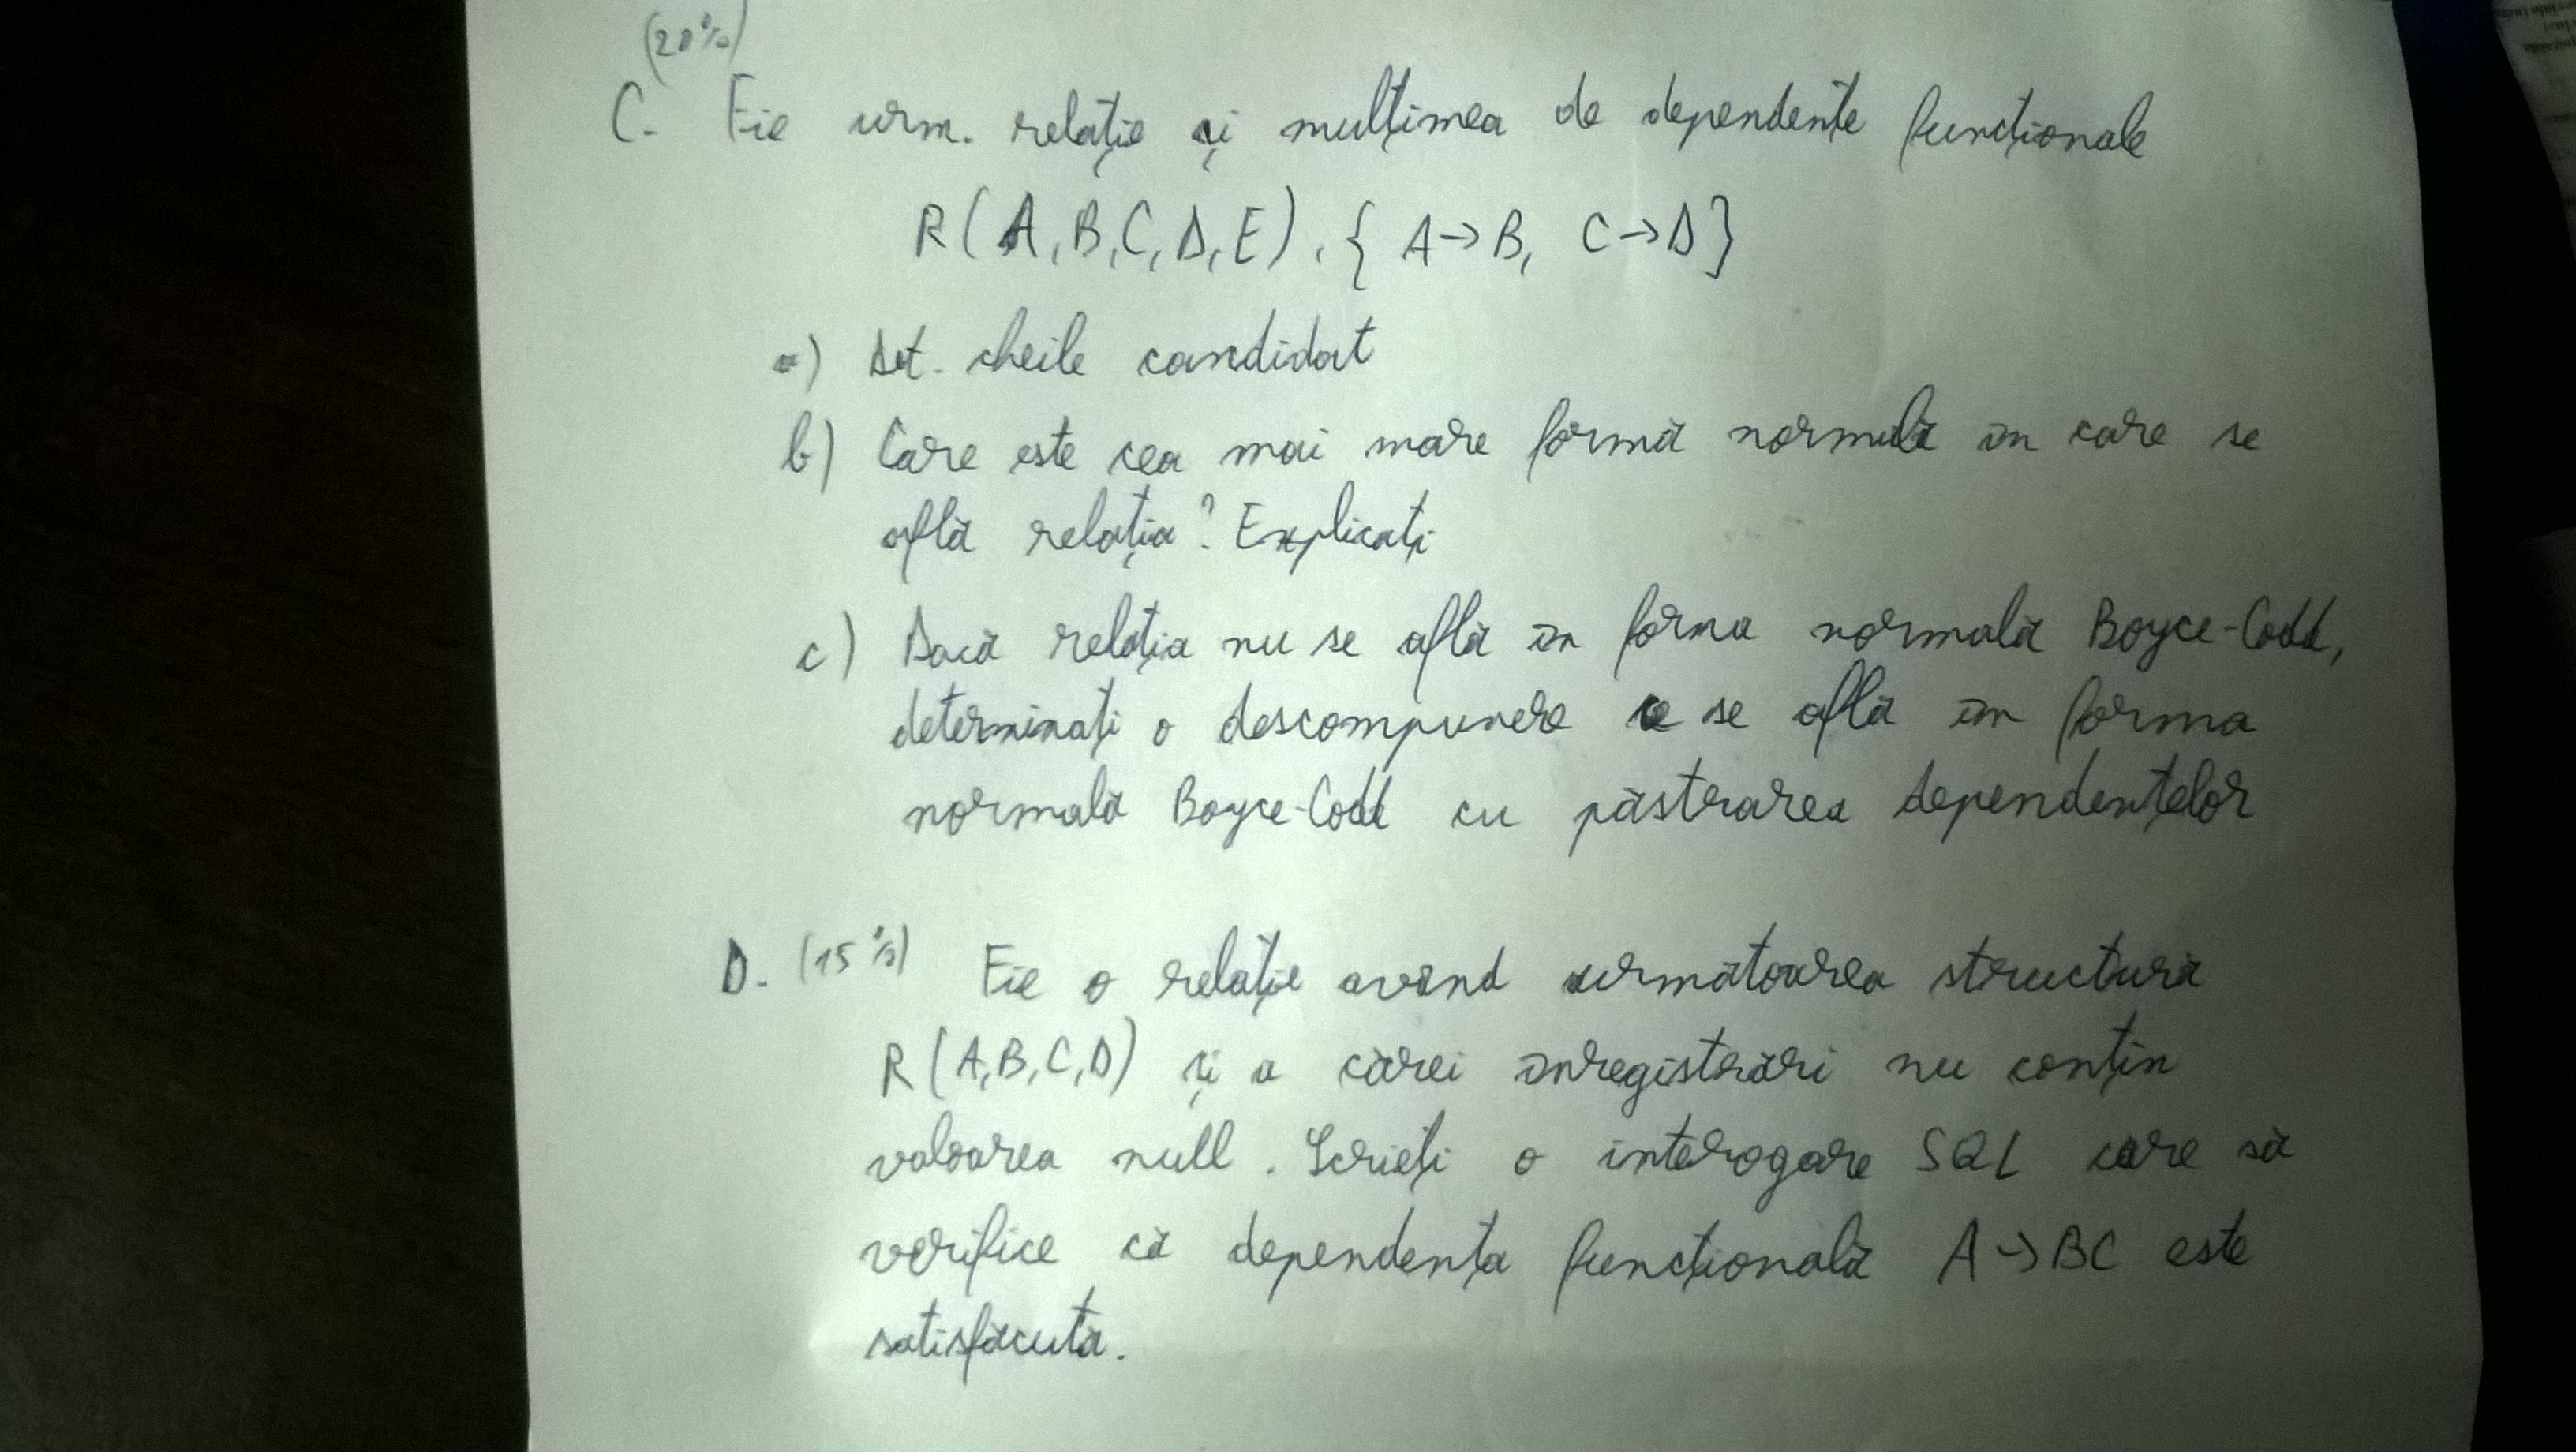 (20%)
C. Fie urm. relație și mulțimea de dependențe funcționale
R(A,B,C,D,E), { A→B, C→D}
a) Det. cheile candidat
b) Care este cea mai mare formă normală în care se
află relația? Explicați
c) Dacă relația nu se află în forma normală Boyce-Codd,
determinați o descompunere ce se află în forma
normală Boyce-Codd cu păstrarea dependențelor
D. (15%) Fie o relație având următoarea structură
R(A,B,C,D) și a cărei înregistrări nu conțin
valoarea null. Scrieți o interogare SQL care să
verifice că dependența funcțională A→BC este
satisfăcută.